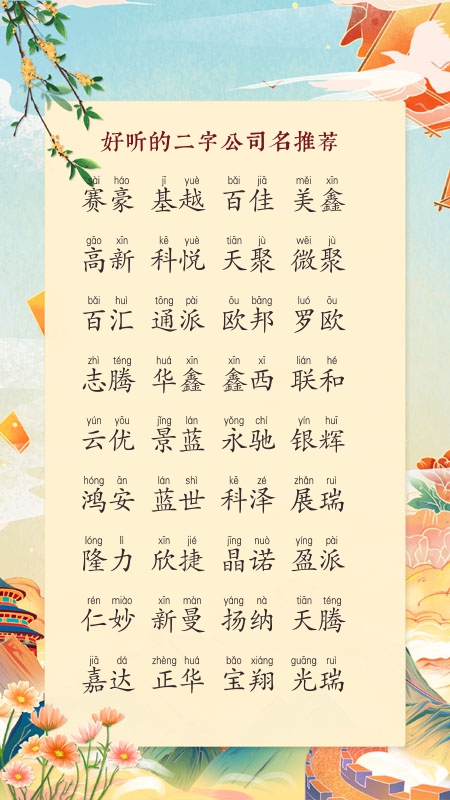 好听的二字公司名推荐
sài háo jī yuè bǎi jiā měi xīn
赛豪 基越 百佳 美鑫
gāo xīn kē yuè tiān jù wēi jù
高新 科悦 天聚 微聚
bǎi huì tōng pài ōu bāng luó ōu
百汇 通派 欧邦 罗欧
zhì téng huá xīn xīn xī lián hé
志腾 华鑫 鑫西 联和
yún yōu jǐng lán yǒng chí yín huī
云优 景蓝 永驰 银辉
hóng ān lán shì kē zé zhǎn ruì
鸿安 蓝世 科泽 展瑞
lóng lì xīn jié jīng nuò yíng pài
隆力 欣捷 晶诺 盈派
rén miào xīn màn yáng nà tiān téng
仁妙 新曼 扬纳 天腾
jiā dá zhèng huá bǎo xiáng guāng ruì
嘉达 正华 宝翔 光瑞